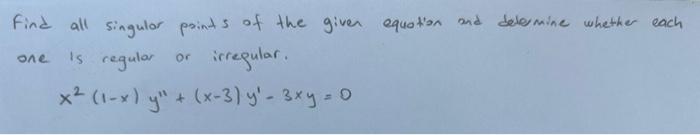 Find all singular points of the given equation and determine whether each
one is regular or irregular.
x² (1-x) y" + (x-3) y' - 3xy = 0